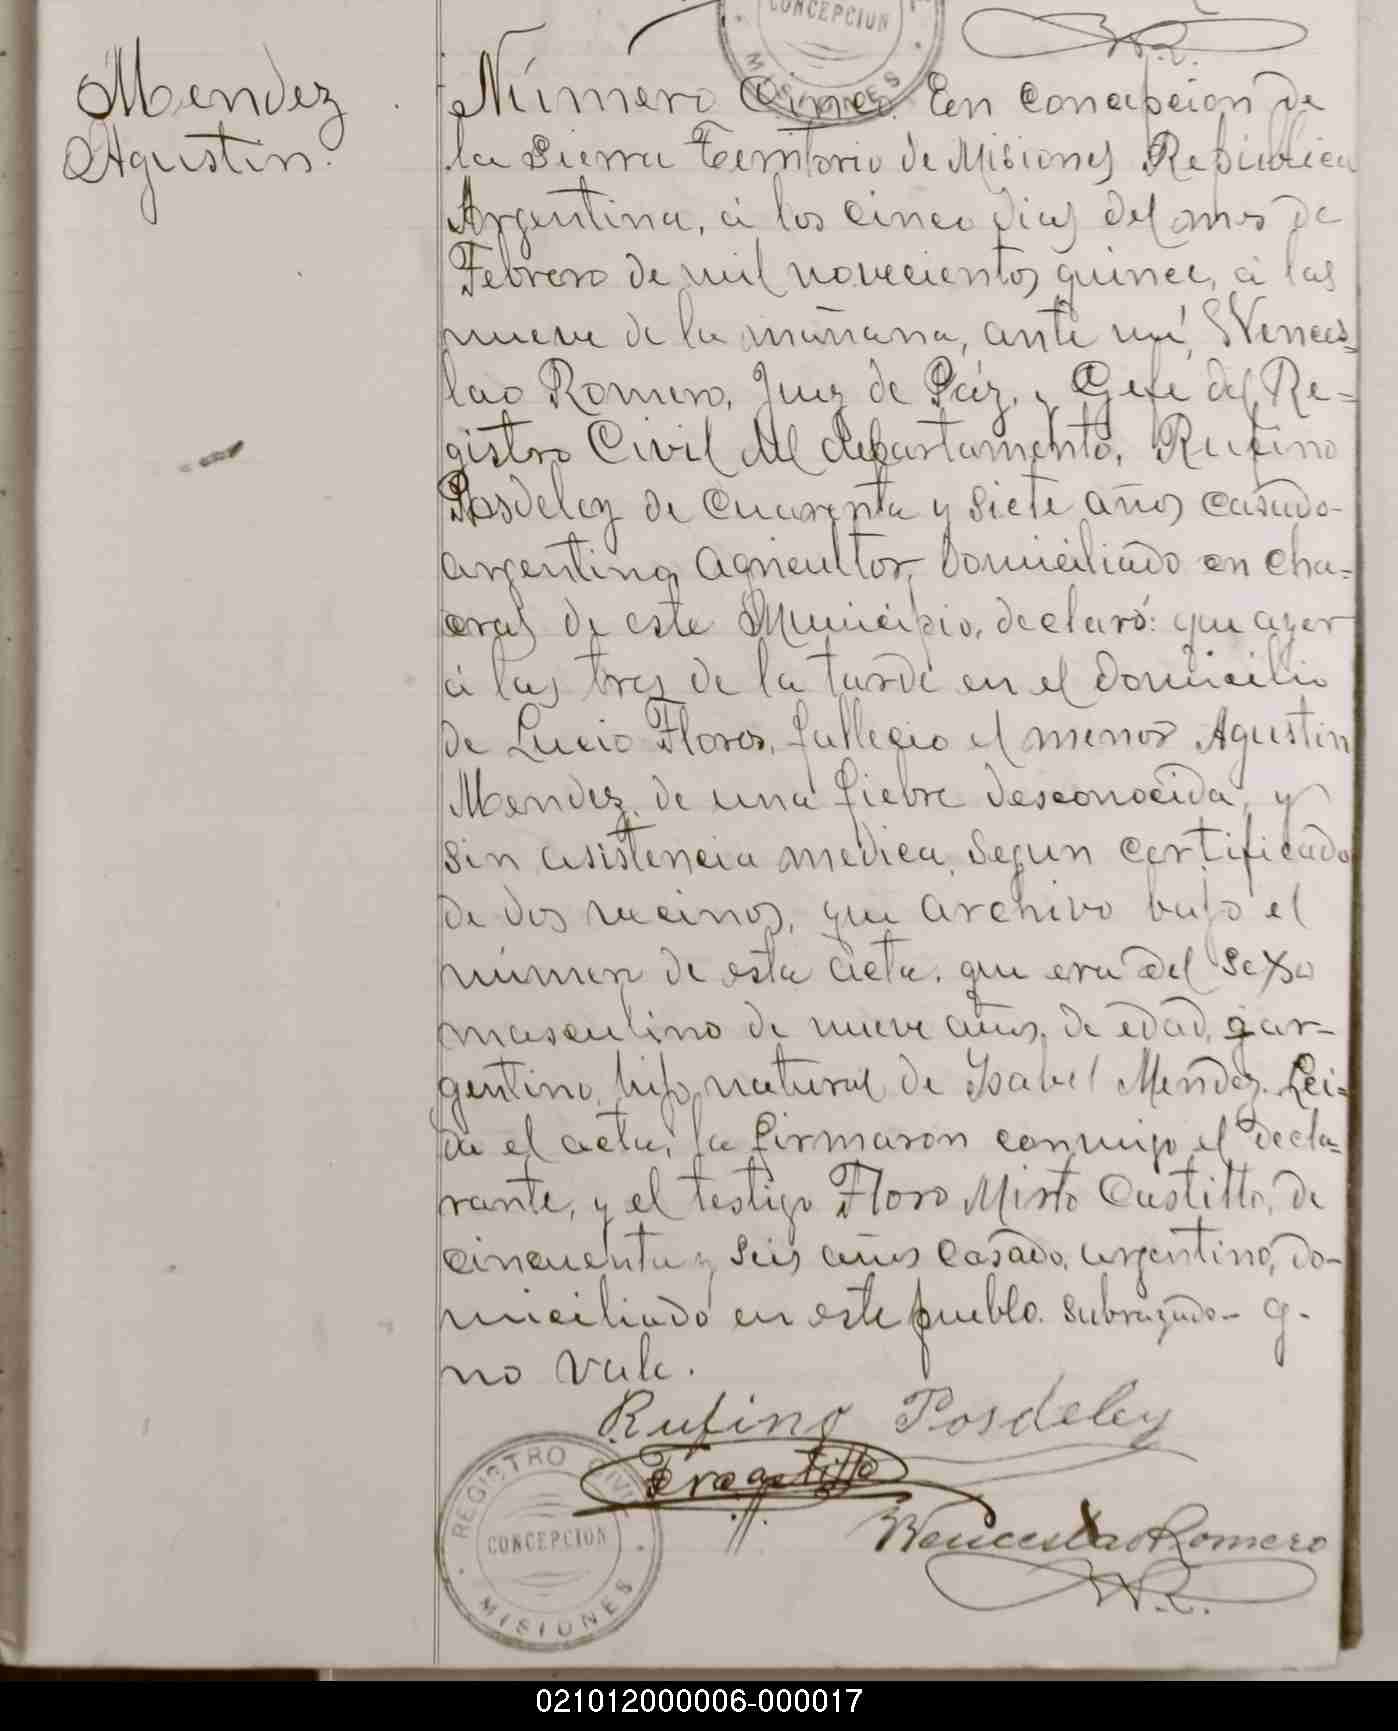 CONCEPCION
MISIONES
W.R.
Mendez
Agustin.
Número Cinco. En Concepcion de
la Sierra Territorio de Misiones Republica
Argentina, á los cinco dias del mes de
Febrero de mil novecientos quince, á las
nueve de la mañana, ante mi, Wences=
lao Romero, Juez de Páz, y Gefe del Re=
gistro Civil del departamento, Rufino
Posdeley de cuarenta y siete años casado
argentino agricultor, domiciliado en cha=
cras de este Municipio, declaró: que ayer
á las tres de la tarde en el domicilio
de Lucio Flores, fallecio el menor Agustin
Mendez, de una fiebre desconocida, y
sin asistencia medica, segun certificado
de dos vecinos, que archivo bajo el
número de esta acta. que era del sexo
masculino de nueve años, de edad, g ar-
gentino, hijo natural de Ysabel Mendez. Lei=
da el acta, la firmaron conmigo el decla=
rante, y el testigo Floro Misto Castillo, de
cincuenta y seis años casado, argentino, do-
miciliado en este pueblo. subrayado - g -
no vale.
Rufino Posdeley
Wenceslao Romero
W.R.
REGISTRO CIVIL
CONCEPCION
MISIONES
021012000006-000017